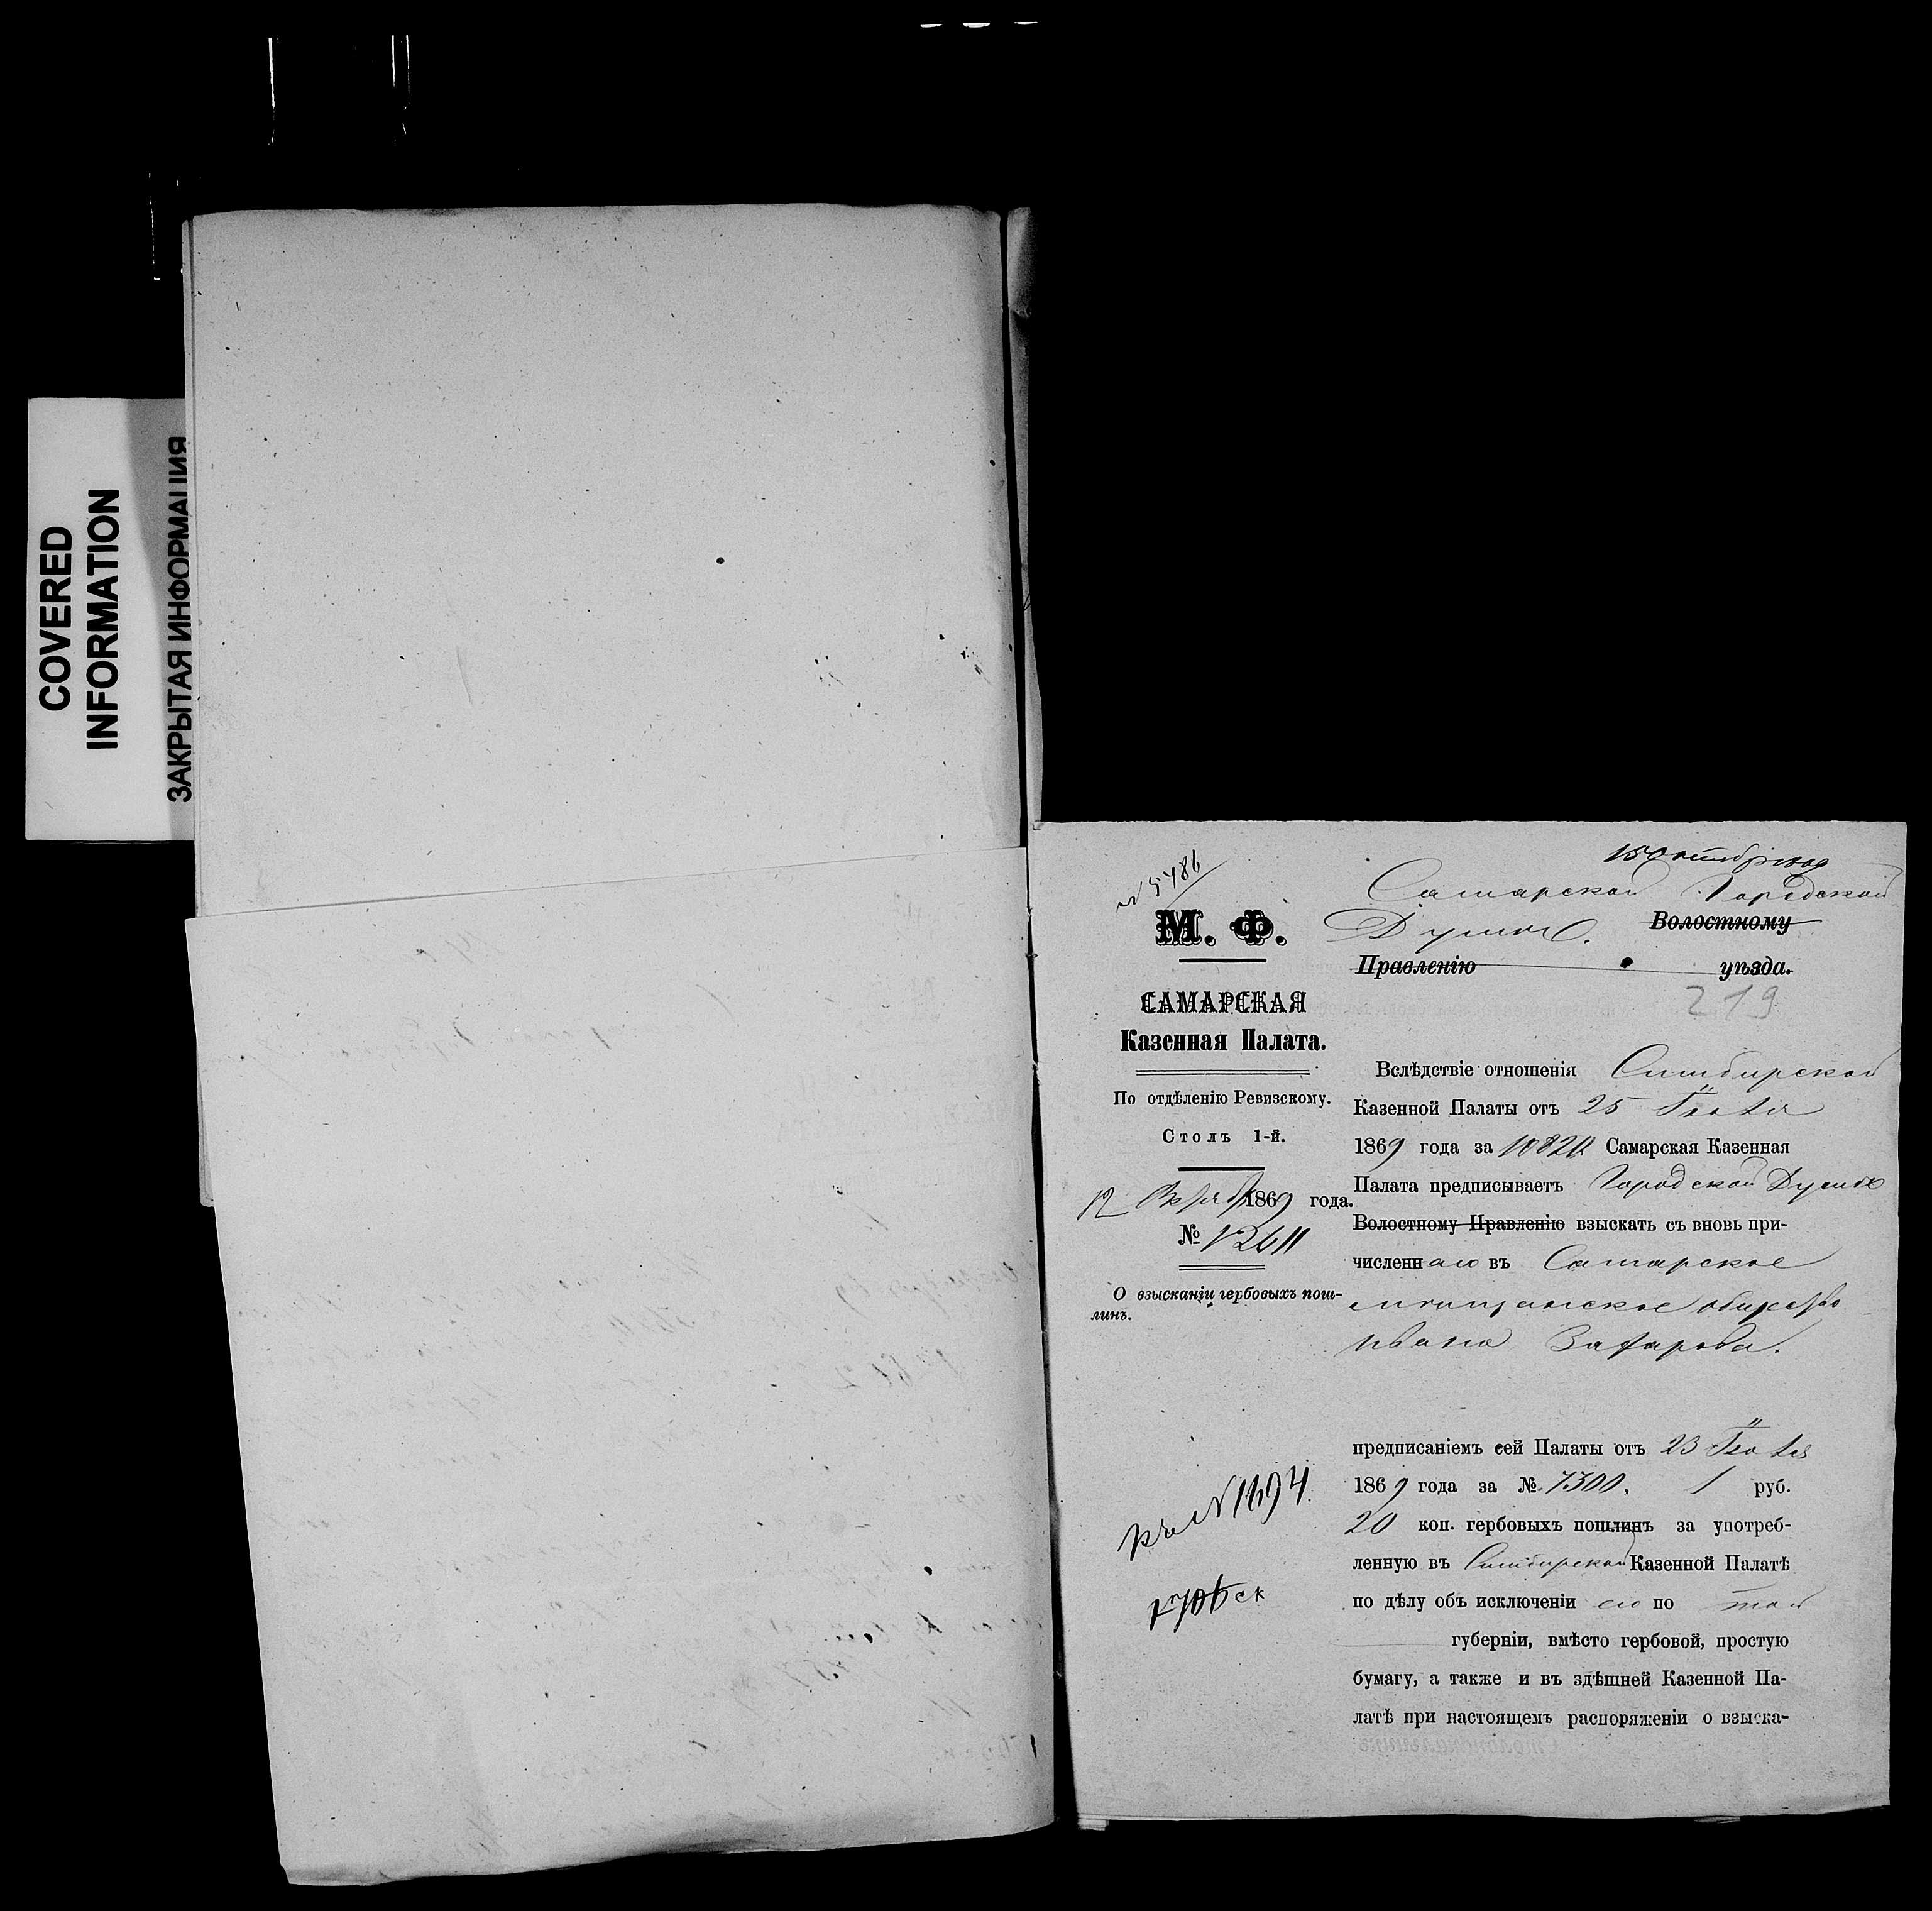 COVERED
INFORMATION
ЗАКРЫТАЯ ИНФОРМАЦИЯ
№ 5486
15 Октября
Самарской Городской
Думѣ. Волостному
Правленію уѣзда.
219
М. Ф.
САМАРСКАЯ
Казенная Палата.
По отдѣленію Ревизскому.
Столъ 1-й.
12 Октября 1869 года.
№ 12611
О взысканіи гербовыхъ пош-
линъ.
Вслѣдствіе отношенія Симбирской
Казенной Палаты отъ 25 Іюля
1869 года за Самарская Казенная
Палата предписываетъ Городской Думѣ
Волостному Правленію взыскать съ вновь при-
численнаго въ Самарское
мѣщанское общество
Ивана Захарова.
предписаніемъ сей Палаты отъ 23 Іюля
1869 года за № 7300, 1 руб.
20 коп. гербовыхъ пошлинъ за употреб-
ленную въ Симбирской Казенной Палатѣ
по дѣлу объ исключеніи его по той
губерніи, вмѣсто гербовой, простую
бумагу, а также и въ здѣшней Казенной Па-
латѣ при настоящемъ распоряженіи о взыска-
№ 1694.